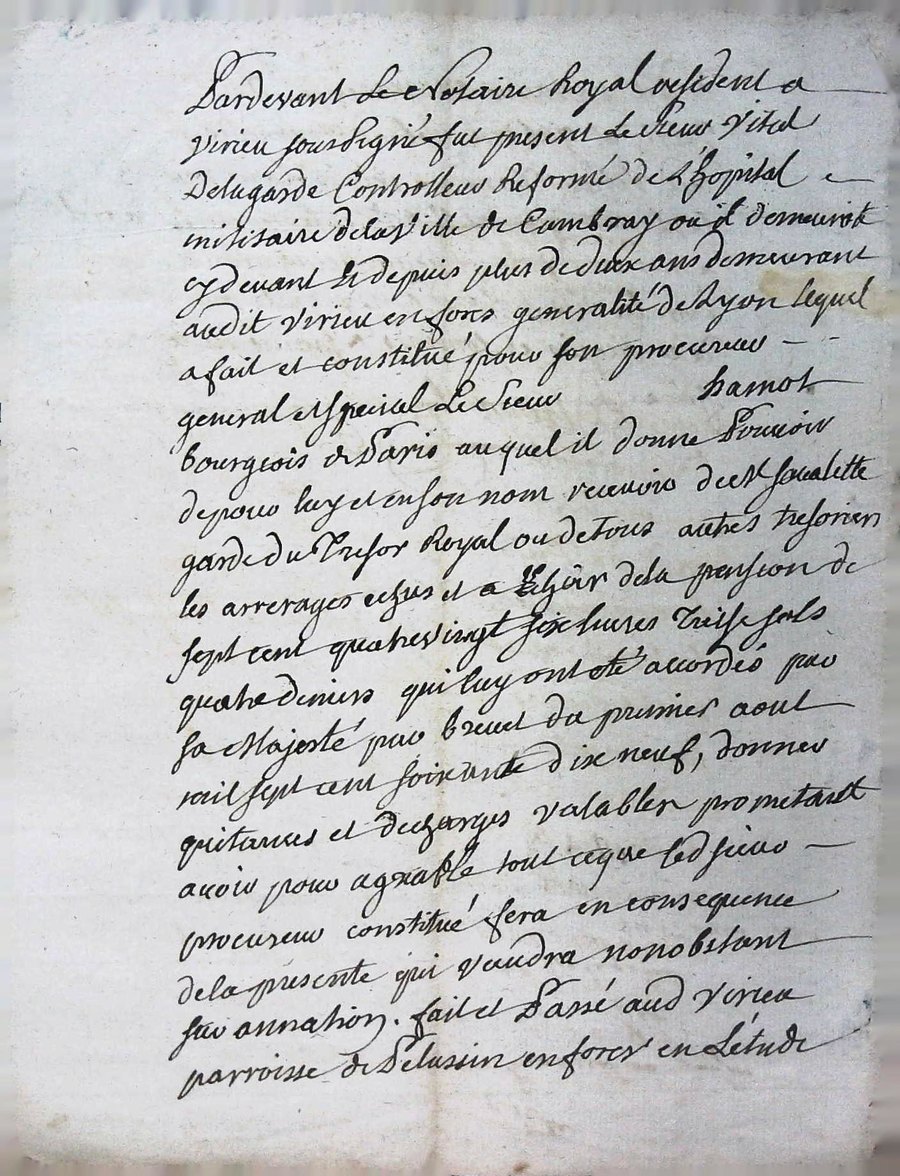 Pardevant Le Notaire Royal resident a
Virieu soussigné fut present Le Sieur Vital
Delagarde Controlleur Reformé de L'hopital
militaire dela Ville de Cambray ou il demeuroit
cy devant et depuis plus de deux ans demeurant
audit Virieu en forès generalité de Lyon lequel
a fait et constitué pour son procureur
general et special Le Sieur hamot
bourgeois de Paris auquel il donne Pouvoir
de pour luy et en son nom recevoir de M Savalette
garde du Tresor Royal ou de tous autres tresoriers
les arrerages echus et a echoir dela pension de
sept cent quatrevingt six livres treise sols
quatre deniers qui luy ont été accordés par
sa Majesté par brevet du premier aout
mil sept cent soixante dix neuf, donner
quitances et decharges valables prometant
avoir pour agreable tout ceque led sieur
procureur constitué fera en consequence
dela presente qui vaudra nonobstant
sur annation. fait et Passé aud Virieu
parroisse de Pelussin en forès en L'étude